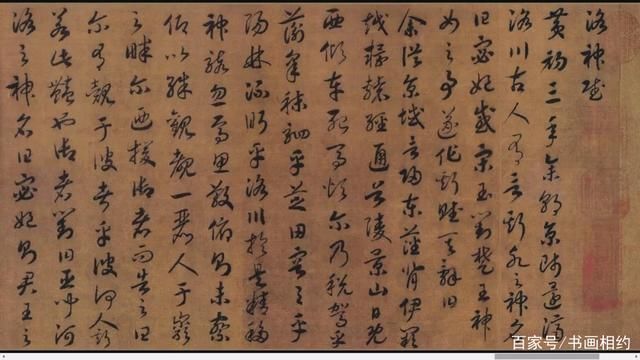 洛神賦
黄初三年余朝京師還濟
洛川古人有言斯水之神名
曰宓妃感宋玉對楚王神
女之事遂作斯賦其辭曰
余從京域言歸東藩背伊闕
越轘轅經通谷陵景山日既
西傾車殆馬煩爾乃税駕乎
蘅皋秣駟乎芝田容與乎
陽林流眄乎洛川於是精移
神駭忽焉思散俯則未察
仰以殊觀覩一麗人于巖
之畔爾迺援御者而告之曰
爾有覿于彼者乎彼何人斯
若此艷也御者對曰臣聞河
洛之神名曰宓妃則君王之
百家号/书画相约